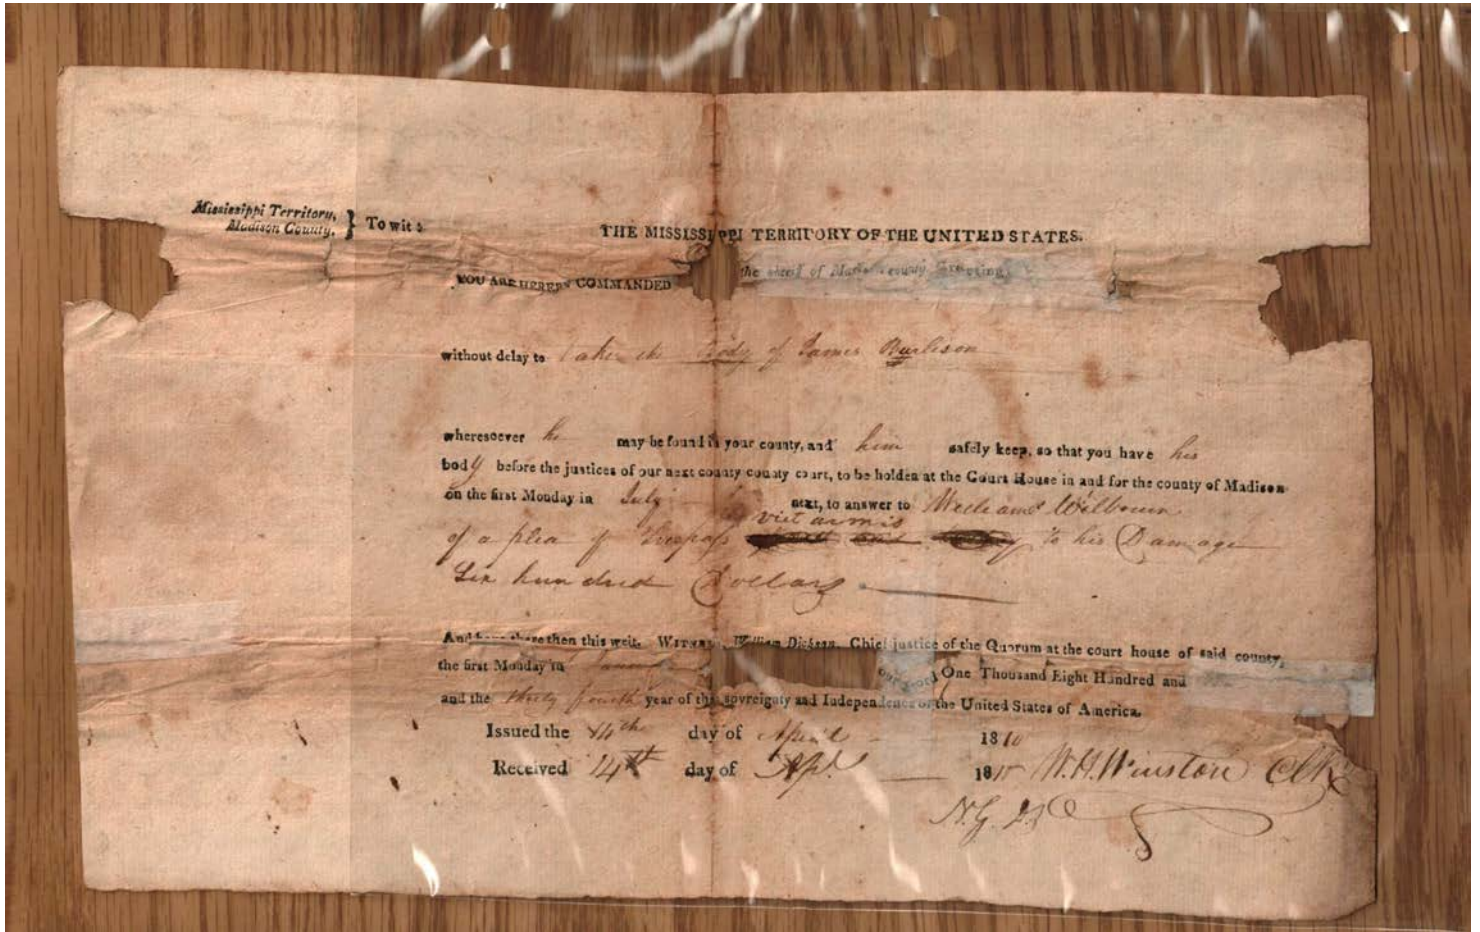 Mississippi Territory,
Madison County. } To wit :
THE MISSISSIPPI TERRITORY OF THE UNITED STATES.
the sheriff of Madison county Greeting
YOU ARE HEREBY COMMANDED
without delay to take the Body of James Burlison
wheresoever he may be found in your county, and him safely keep, so that you have his
body before the justices of our next county county court, to be holden at the Court House in and for the county of Madison
on the first Monday in July next, to answer to William Wilbourn
viet armis
of a plea of Trespass to his Damage
Six hundred Dollars
And have there then this writ. WITNESS, William Dickson, Chief justice of the Quorum at the court house of said county,
the first Monday in January our Lord One Thousand Eight Hundred and
and the thirty fourth year of the sovreignty and Independence of the United States of America.
Issued the 14th day of April 1810
Received 14th day of Apl. 1810 W. H. Winston Clk
N.G.